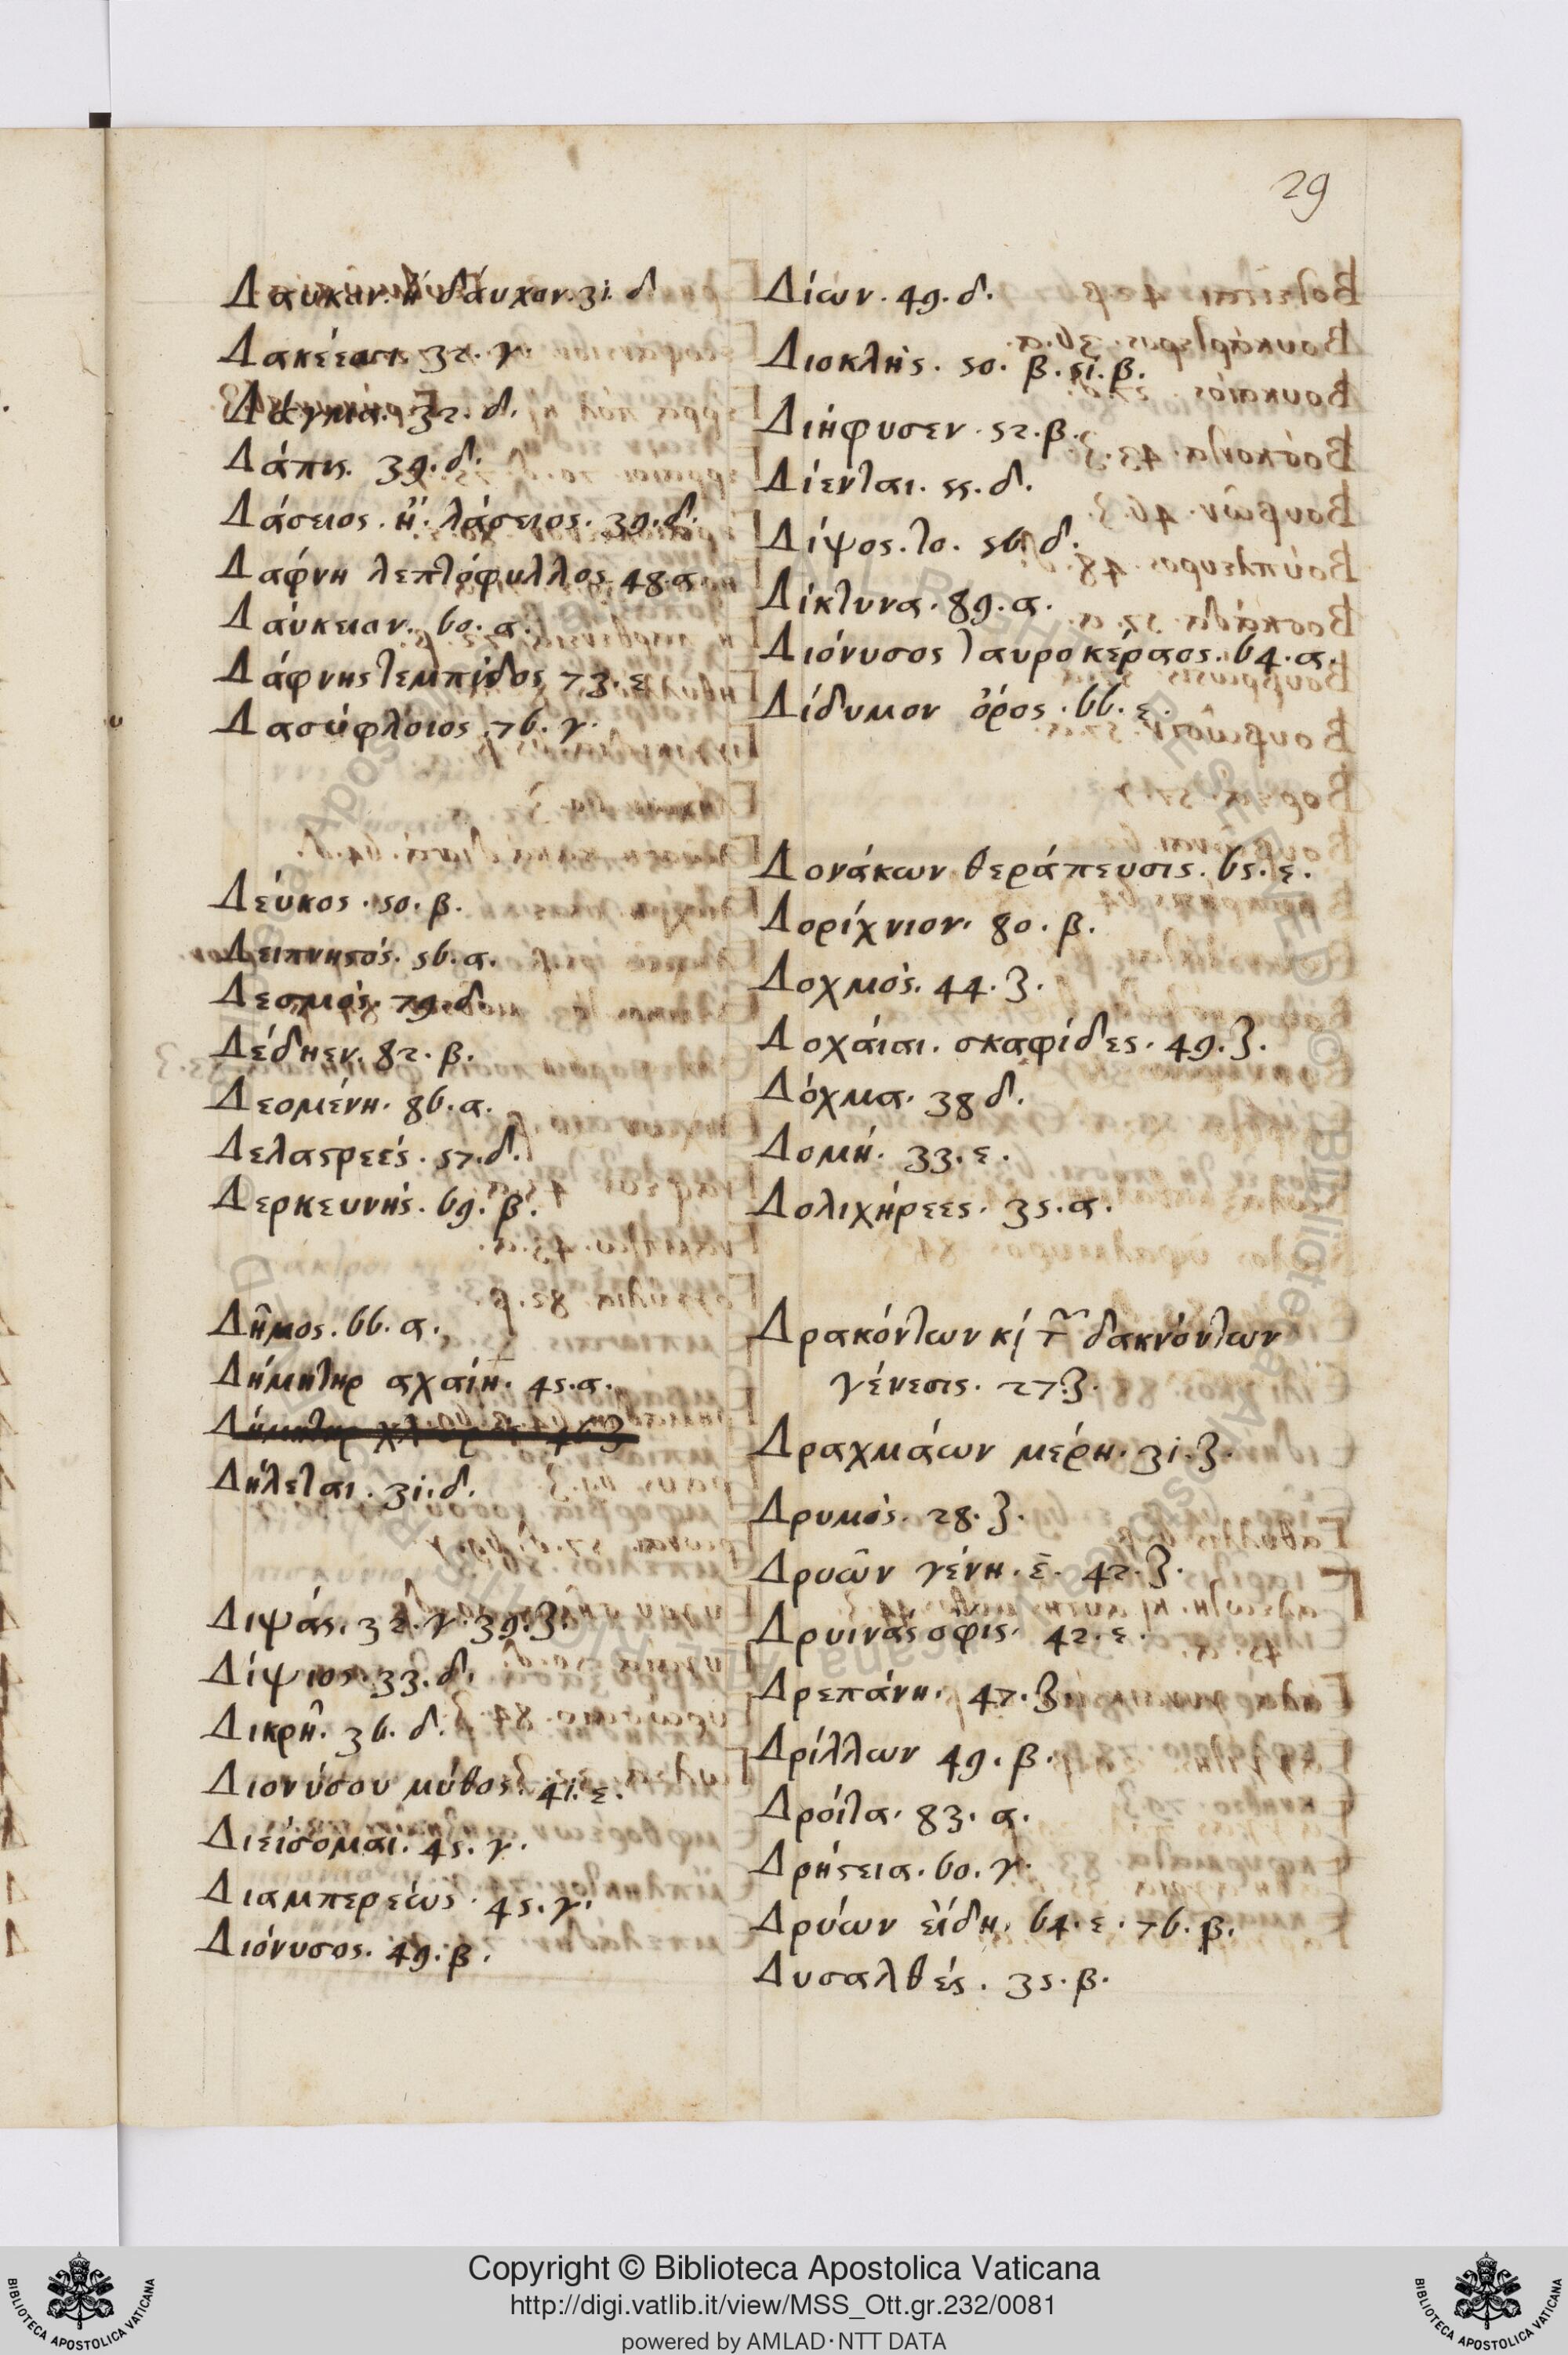 29
Δαυκον. ἢ δάυχον. 31. δ
Δακέεατ. 32. γ
Δάγματ. 32. δ.
Δάπις. 39. δ.
Δάσειος. ἢ. λάσειος. 39. δ.
Δάφνη λεπτόφυλλος 48. α.
Δάυκειον. 60. α.
Δάφνης τεμπίδος 73. ε
Δασύφλοιος. 76. γ.
Δεύκος. 50. β.
Δειπνηστός. 56. α.
Δεσμός. 79. δ.
Δέδηεν. 82. β.
Δεομένη. 86. α.
Δελαστρεές. 57. δ.
Δερκευνής. 69. β.
Δῆμος. 66. α.
Δήμητηρ αχαίη. 45. α.
Δήλεται. 31. δ.
Διψάς. 32. γ. 39. ζ.
Δίψιος. 33. δ.
Δικρῆ. 36. δ.
Διονύσου μύθος. 41. ε.
Διείσομαι. 45. γ.
Διαμπερέως. 45. γ.
Διόνυσος. 49. β.
Δίων. 49. δ.
Διοκλῆς. 50. β. 51. β.
Διήφυσεν. 52. β.
Δίενται. 55. δ.
Δίψος. το. 56. δ.
Δίκτυνα. 89. α.
Διόνυσος ταυροκέραος. 64. α.
Δίδυμον ὄρος. 66. ε.
Δονάκων θεράπευσις. 65. ε.
Δορίχνιον. 80. β.
Δοχμός. 44. ζ.
Δοχάιαι. σκαφίδες. 49. ζ.
Δόχμα. 38 δ.
Δομή. 33. ε.
Δολιχήρεες. 35. α.
Δρακόντων κ τ δακνόντων
γένεσις. 27. ζ.
Δραχμάων μέρη. 31. ζ.
Δρυμός. 28. ζ.
Δρυῶν γένη. ε. 42. ζ.
Δρυινάς ὄφις. 42. ε.
Δρεπάνη. 47. ζ
Δρίλλων 49. β.
Δρόιτα. 83. α.
Δρήστεια. 60. γ.
Δρύων εἴδη. 64. ε. 76. β.
Δυσαλθές. 35. β.
Copyright © Biblioteca Apostolica Vaticana
http://digi.vatlib.it/view/MSS_Ott.gr.232/0081
powered by AMLAD·NTT DATA
BIBLIOTECA APOSTOLICA VATICANA
BIBLIOTECA APOSTOLICA VATICANA